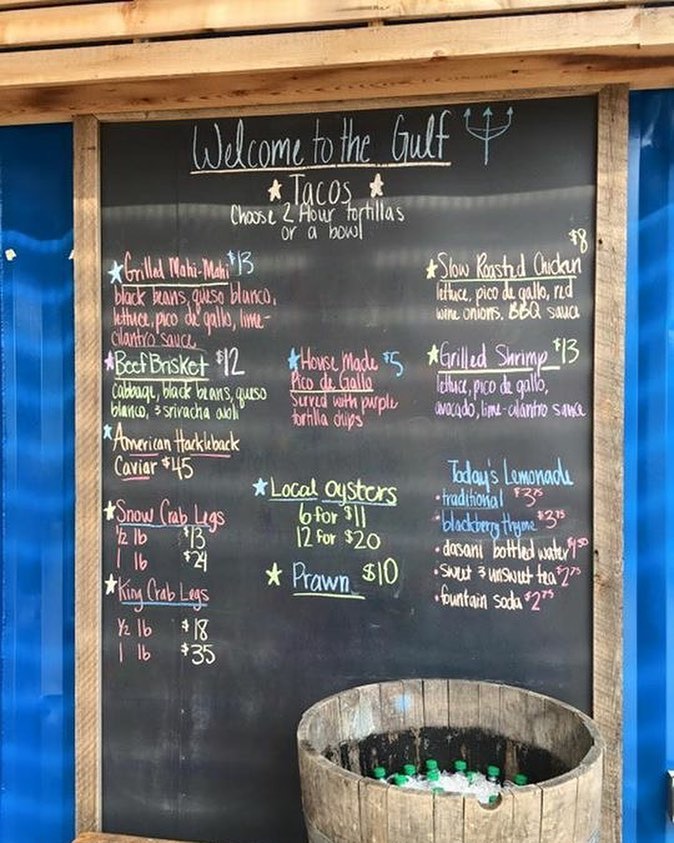 Welcome to the Gulf
Tacos
Choose 2 flour tortillas
or a bowl
Grilled Mahi-Mahi $13
black beans, queso blanco,
lettuce, pico de gallo, lime-
cilantro sauce
Beef Brisket $12
cabbage, black beans, queso
blanco, & sriracha aioli
American Hackleback
Caviar $45
Snow Crab Legs
1/2 lb $13
1 lb $24
King Crab Legs
1/2 lb $18
1 lb $35
House Made $5
Pico de Gallo
Served with purple
tortilla chips
Local Oysters
6 for $11
12 for $20
Prawn $10
$8
Slow Roasted Chicken
lettuce, pico de gallo, red
wine onions, BBQ sauce
Grilled Shrimp $13
lettuce, pico de gallo,
avocado, lime-cilantro sauce
Today's Lemonade
• traditional $3.75
• blackberry thyme $3.75
• dasani bottled water $1.50
• sweet & unsweet tea $2.75
• fountain soda $2.75